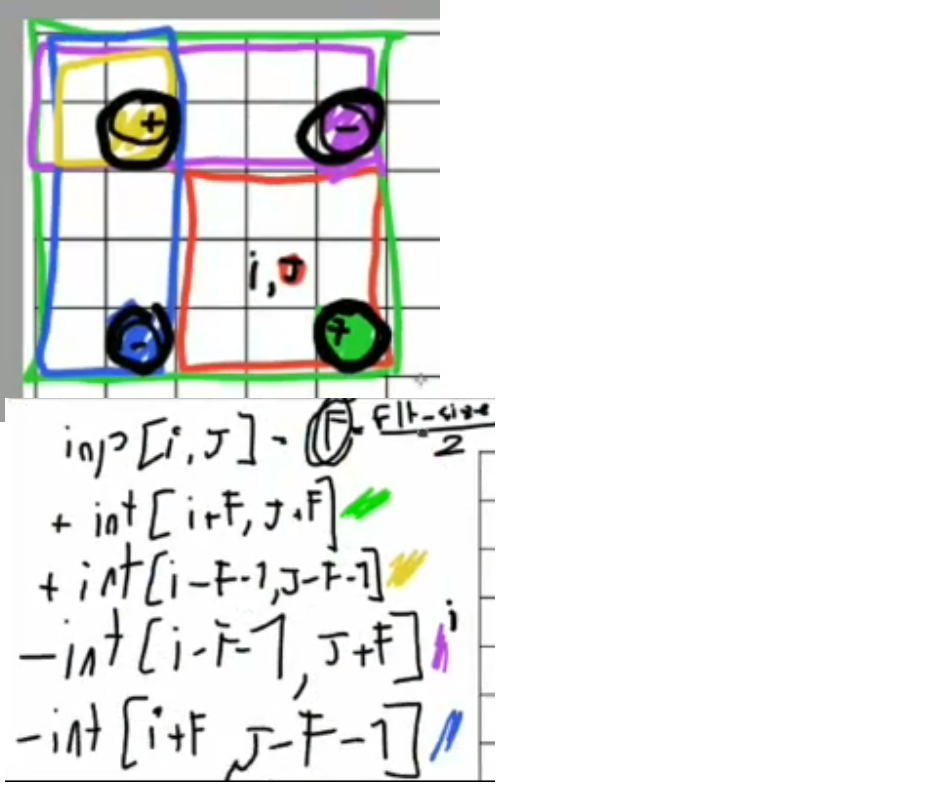 + -
i, J
- +
inp[i, J] - F - Flt-size
2
+ int[i+F, J+F]
+ int[i-F-1, J-F-1]
i
-int[i-F-1, J+F]
-int[i+F, J-F-1]